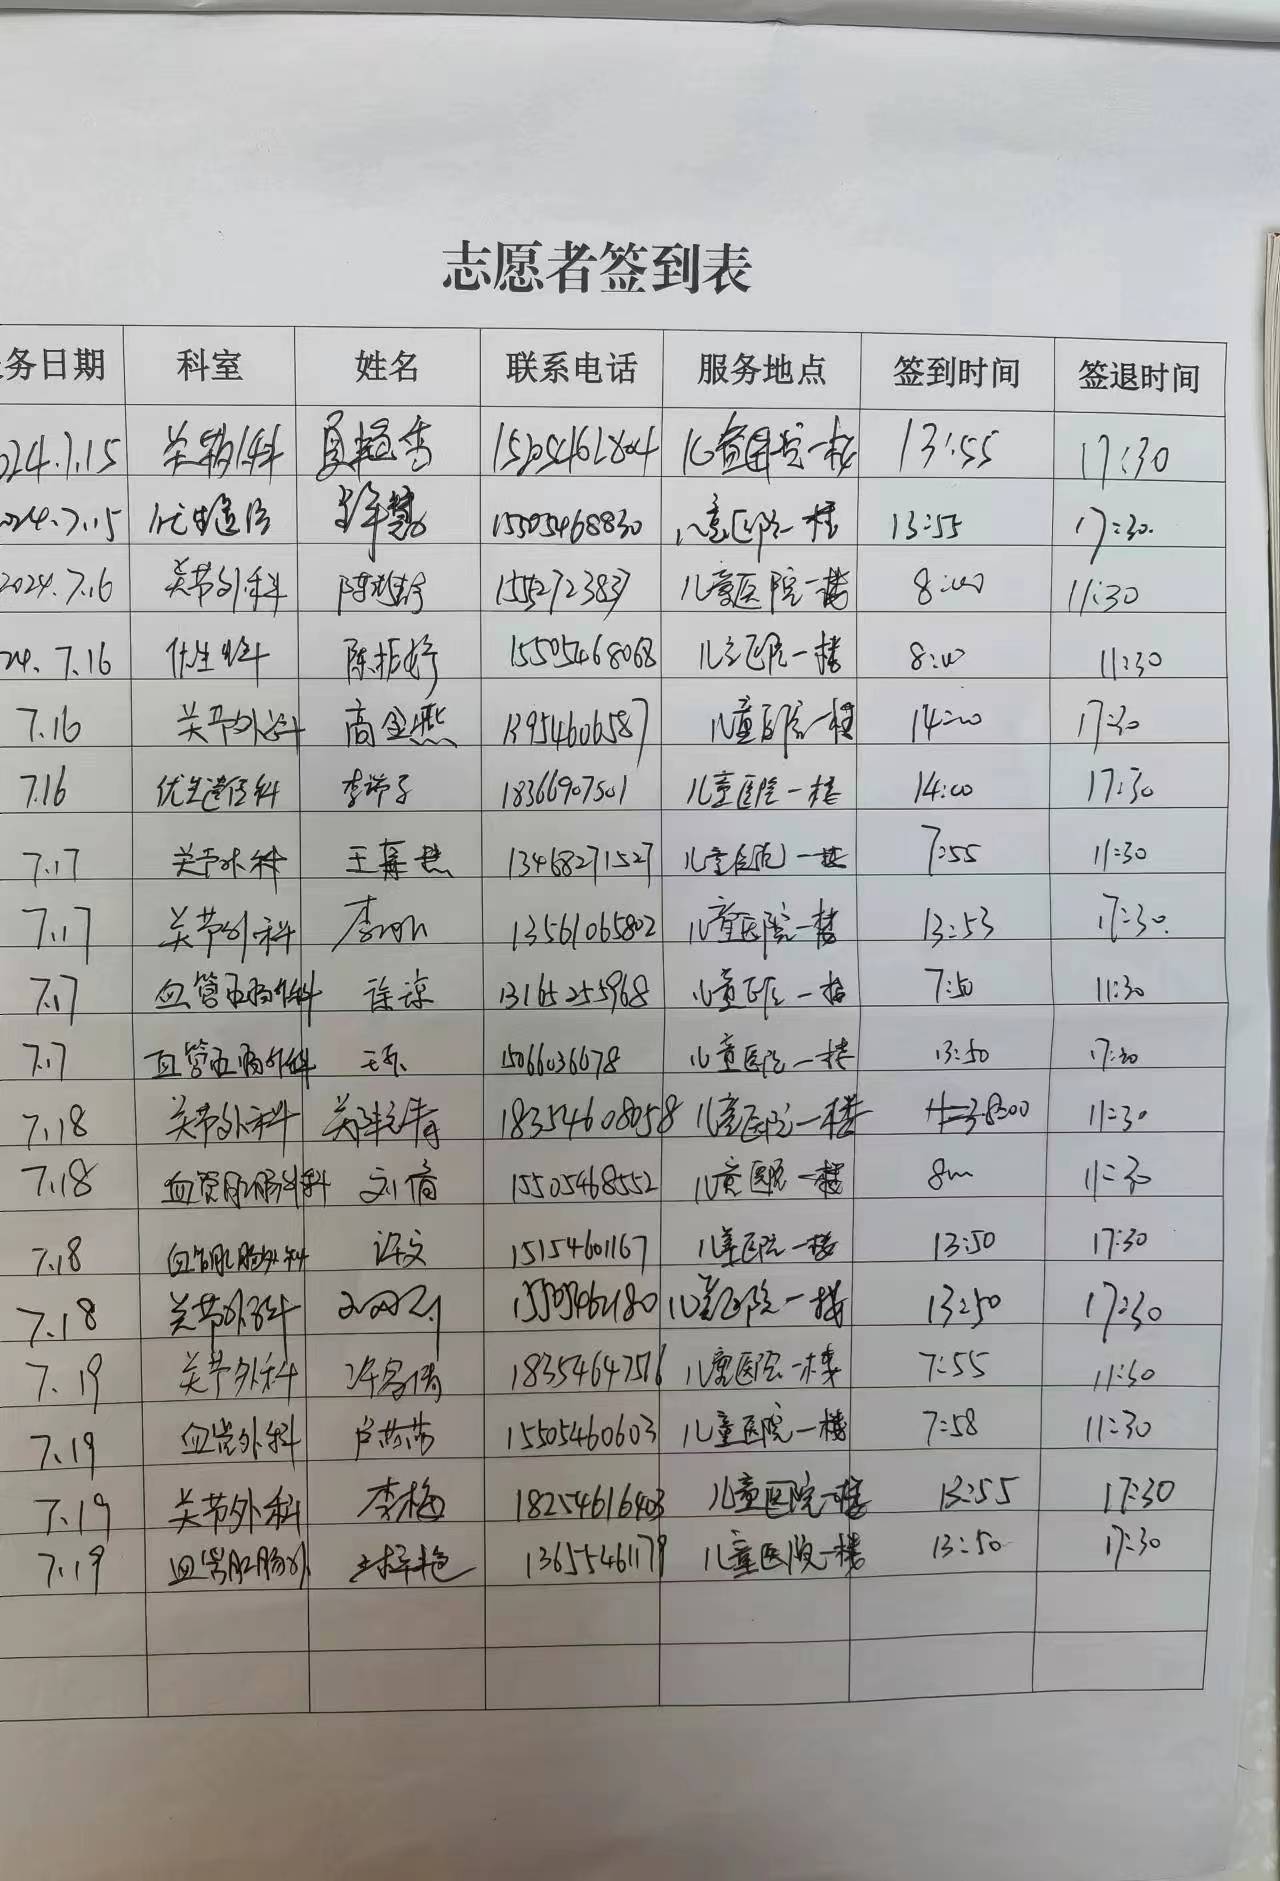 志愿者签到表
务日期 科室 姓名 联系电话 服务地点 签到时间 签退时间
024.7.15 15205462804 儿童医院一楼 13:55 17:30
2024.7.15 优生遗传 15505468830 儿童医院一楼 13:55 17:30.
2024.7.16 关节外科 儿童医院一楼 8:00 11:30
24.7.16 优生科 15505468068 儿童医院一楼 8:00 11:30
7.16 关节外科 高金燕 13954606587 儿童医院一楼 14:00 17:30
7.16 优生遗传科 18366907501 儿童医院一楼 14:00 17:30
7.17 关节外科 13468271527 儿童医院一楼 7:55 11:30
7.17 关节外科 13561065802 儿童医院一楼 13:53 17:30.
7.17 血管 外科 徐谅 13165255968 儿童医院一楼 7:50 11:30
7.17 血管 外科 15066036678 儿童医院一楼 13:50 17:30
7.18 关节外科 18354608058 儿童医院一楼 8:00 11:30
7.18 血管肛肠外科 刘倩 15505468552 儿童医院一楼 8:00 11:30
7.18 血管肛肠外科 许文 15154601167 儿童医院一楼 13:50 17:30
7.18 关节外科 15505462180 儿童医院一楼 13:50 17:30
7.19 关节外科 18354647516 儿童医院一楼 7:55 11:30
7.19 血管外科 卢莎莎 15505460603 儿童医院一楼 7:58 11:30
7.19 关节外科 李梅 18254616403 儿童医院一楼 13:55 17:30
7.19 血管肛肠外 13655461179 儿童医院一楼 13:50 17:30